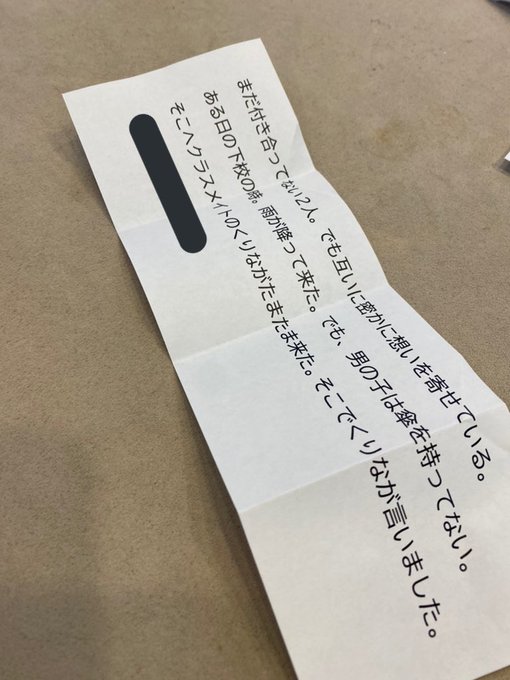 まだ付き合ってない2人。でも互いに密かに想いを寄せている。
ある日の下校の時。雨が降って来た。でも、男の子は傘を持ってない。
そこへクラスメイトのくりながたまたま来た。そこでくりなが言いました。